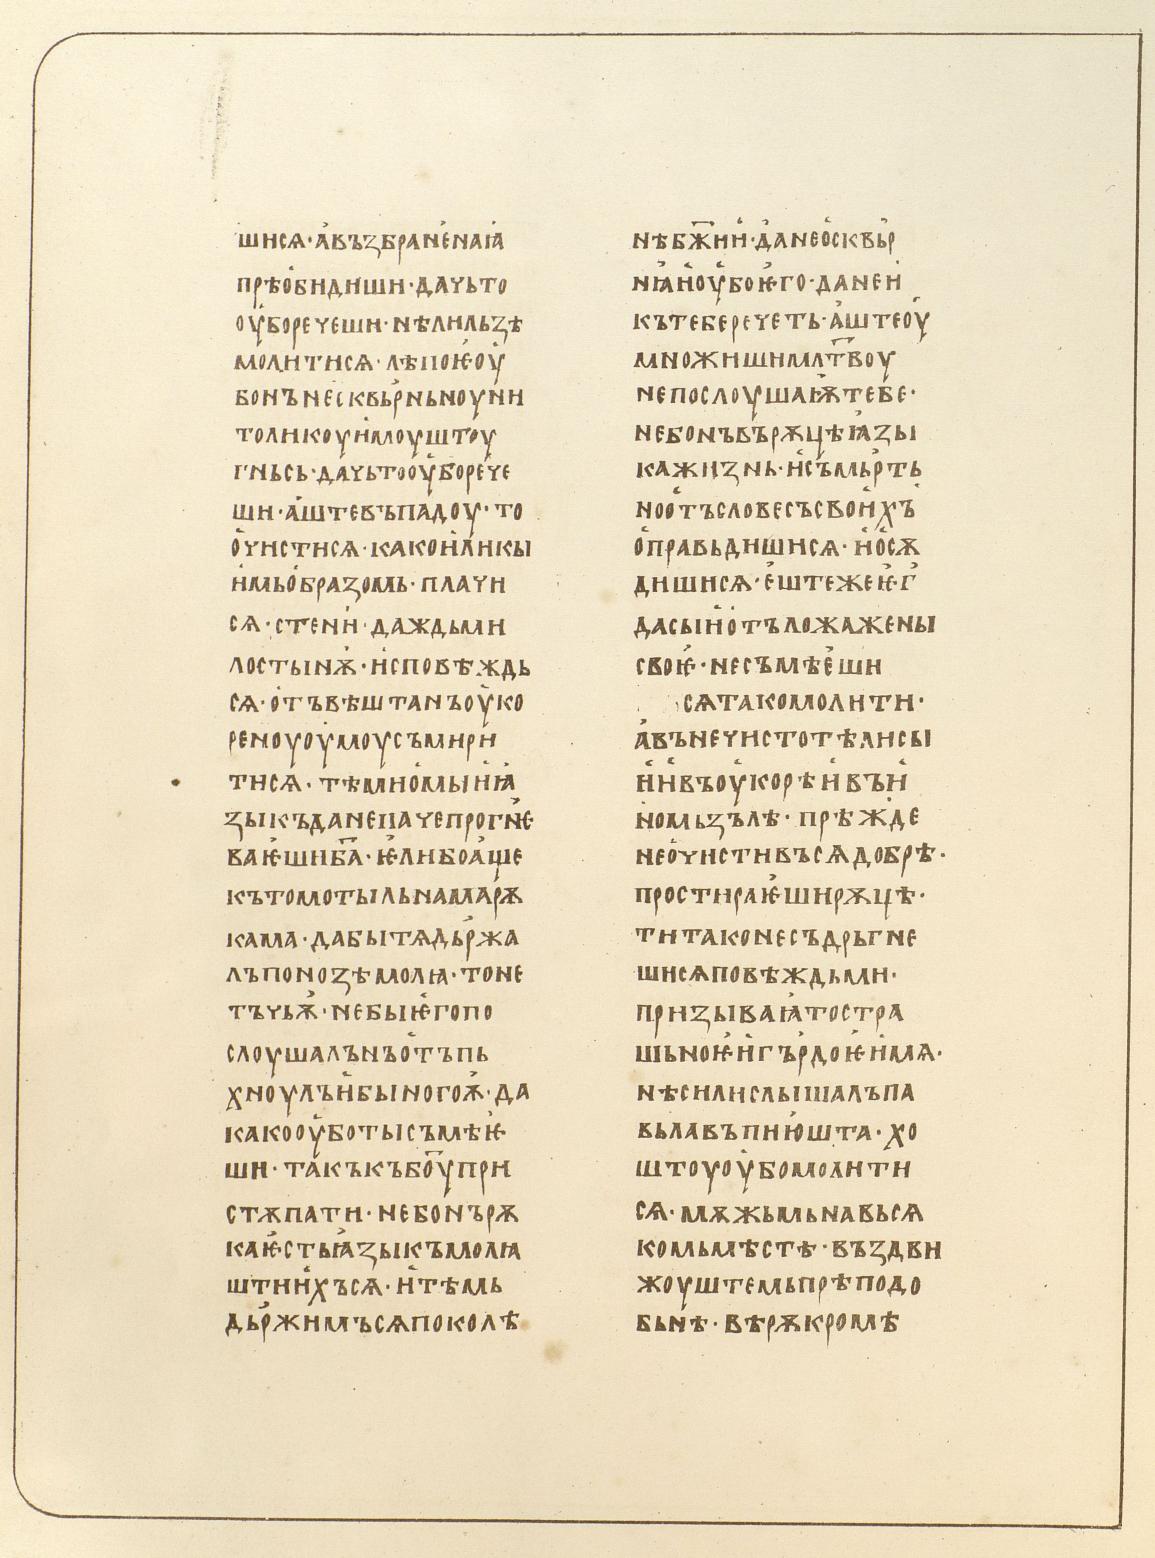 шисѧ· а҆въꙁбране҆наꙗ҆
прѣо҆бидиши· дачьто
оу҆боречеши· нѣлильꙁѣ
молитисѧ· лѣпоѥ҆оу҆
бонънескврь҆ньноу҆ни
толикоуи҆моуштоу
гнь҆сь· дачьтооу҆борече
ши· а҆штевъпадоу· то
о҆чистисѧ· какои҆ликы
и҆мьо҆браꙁомь· плачи
сѧ· стени҆· даждьми
лостынѫ҆· и҆сповѣждь
сѧ· о҆тъвѣштанъоу҆ко
реноуоу҆моусъмири҆
тисѧ· тѣмно҆мыи҆ꙗ҆
ꙁыкъданепачепрогнѣ
ваѥ҆шиб҃а· ѥ҆либоа҆ще
къто҆мотыльнамарѫ
кама· дабытѧдь҆ржа
лъпоноꙁѣмолꙗ· тоне
тъчьѭ҆· небыѥ҆гопо
слоушалънъо҆тъпь
хноу҆лъи҆быногоѭ҆· да
какооу҆ботысъмѣѥ҆
ши· такъкъбо҃упри
стѫпати· небонърѫ
каѥ҆стьꙗ҆ꙁыкъмолꙗ
штии҆хъсѧ· и҆тѣмь
дь҆ржимъсѧпоколѣ
нѣбж҃ии҆· да҆нео҆сквьр
нꙗ҆и҆оу҆боѥ҆го· данеи҆
кътеберечеть· а҆штеоу҆
множишимлт҃воу
непослоушаѭ҆тебе·
небонъвъ҆рѫцѣꙗ҆ꙁы
кажиꙁнь· и҆съ҆мь҆рть
ноо҆тъсловесъсвои҆хъ
о҆правьдишисѧ· и҆о҆сѫ
дишисѧ· е҆штежеѥ҆г҆
дасыи҆о҆тъложажены
своѥ҆· несъмѣе҆ши
сѧтакомолити·
а҆въ҆нечистотѣлисы
и҆и҆въоу҆корѣи҆въи҆
номьꙁълѣ· прѣжде
нео҆чистивъсѧдобрѣ·
простираѥ҆широуцѣ·
титаконесъдрьгне
шисѧповѣждьми·
приꙁываꙗ҆тостра
шьноѥ҆и҆гъ҆рдоѥ҆и҆мѧ·
нѣсилислышалъпа
вьлавъпию҆шта· хо
штоуоу҆бомолити
сѧ· мѫжьмьнавьсѧ
комьмѣстѣ· въꙁдви
жоуштемьпрѣподо
бьнѣ· вѣрѫкромѣ